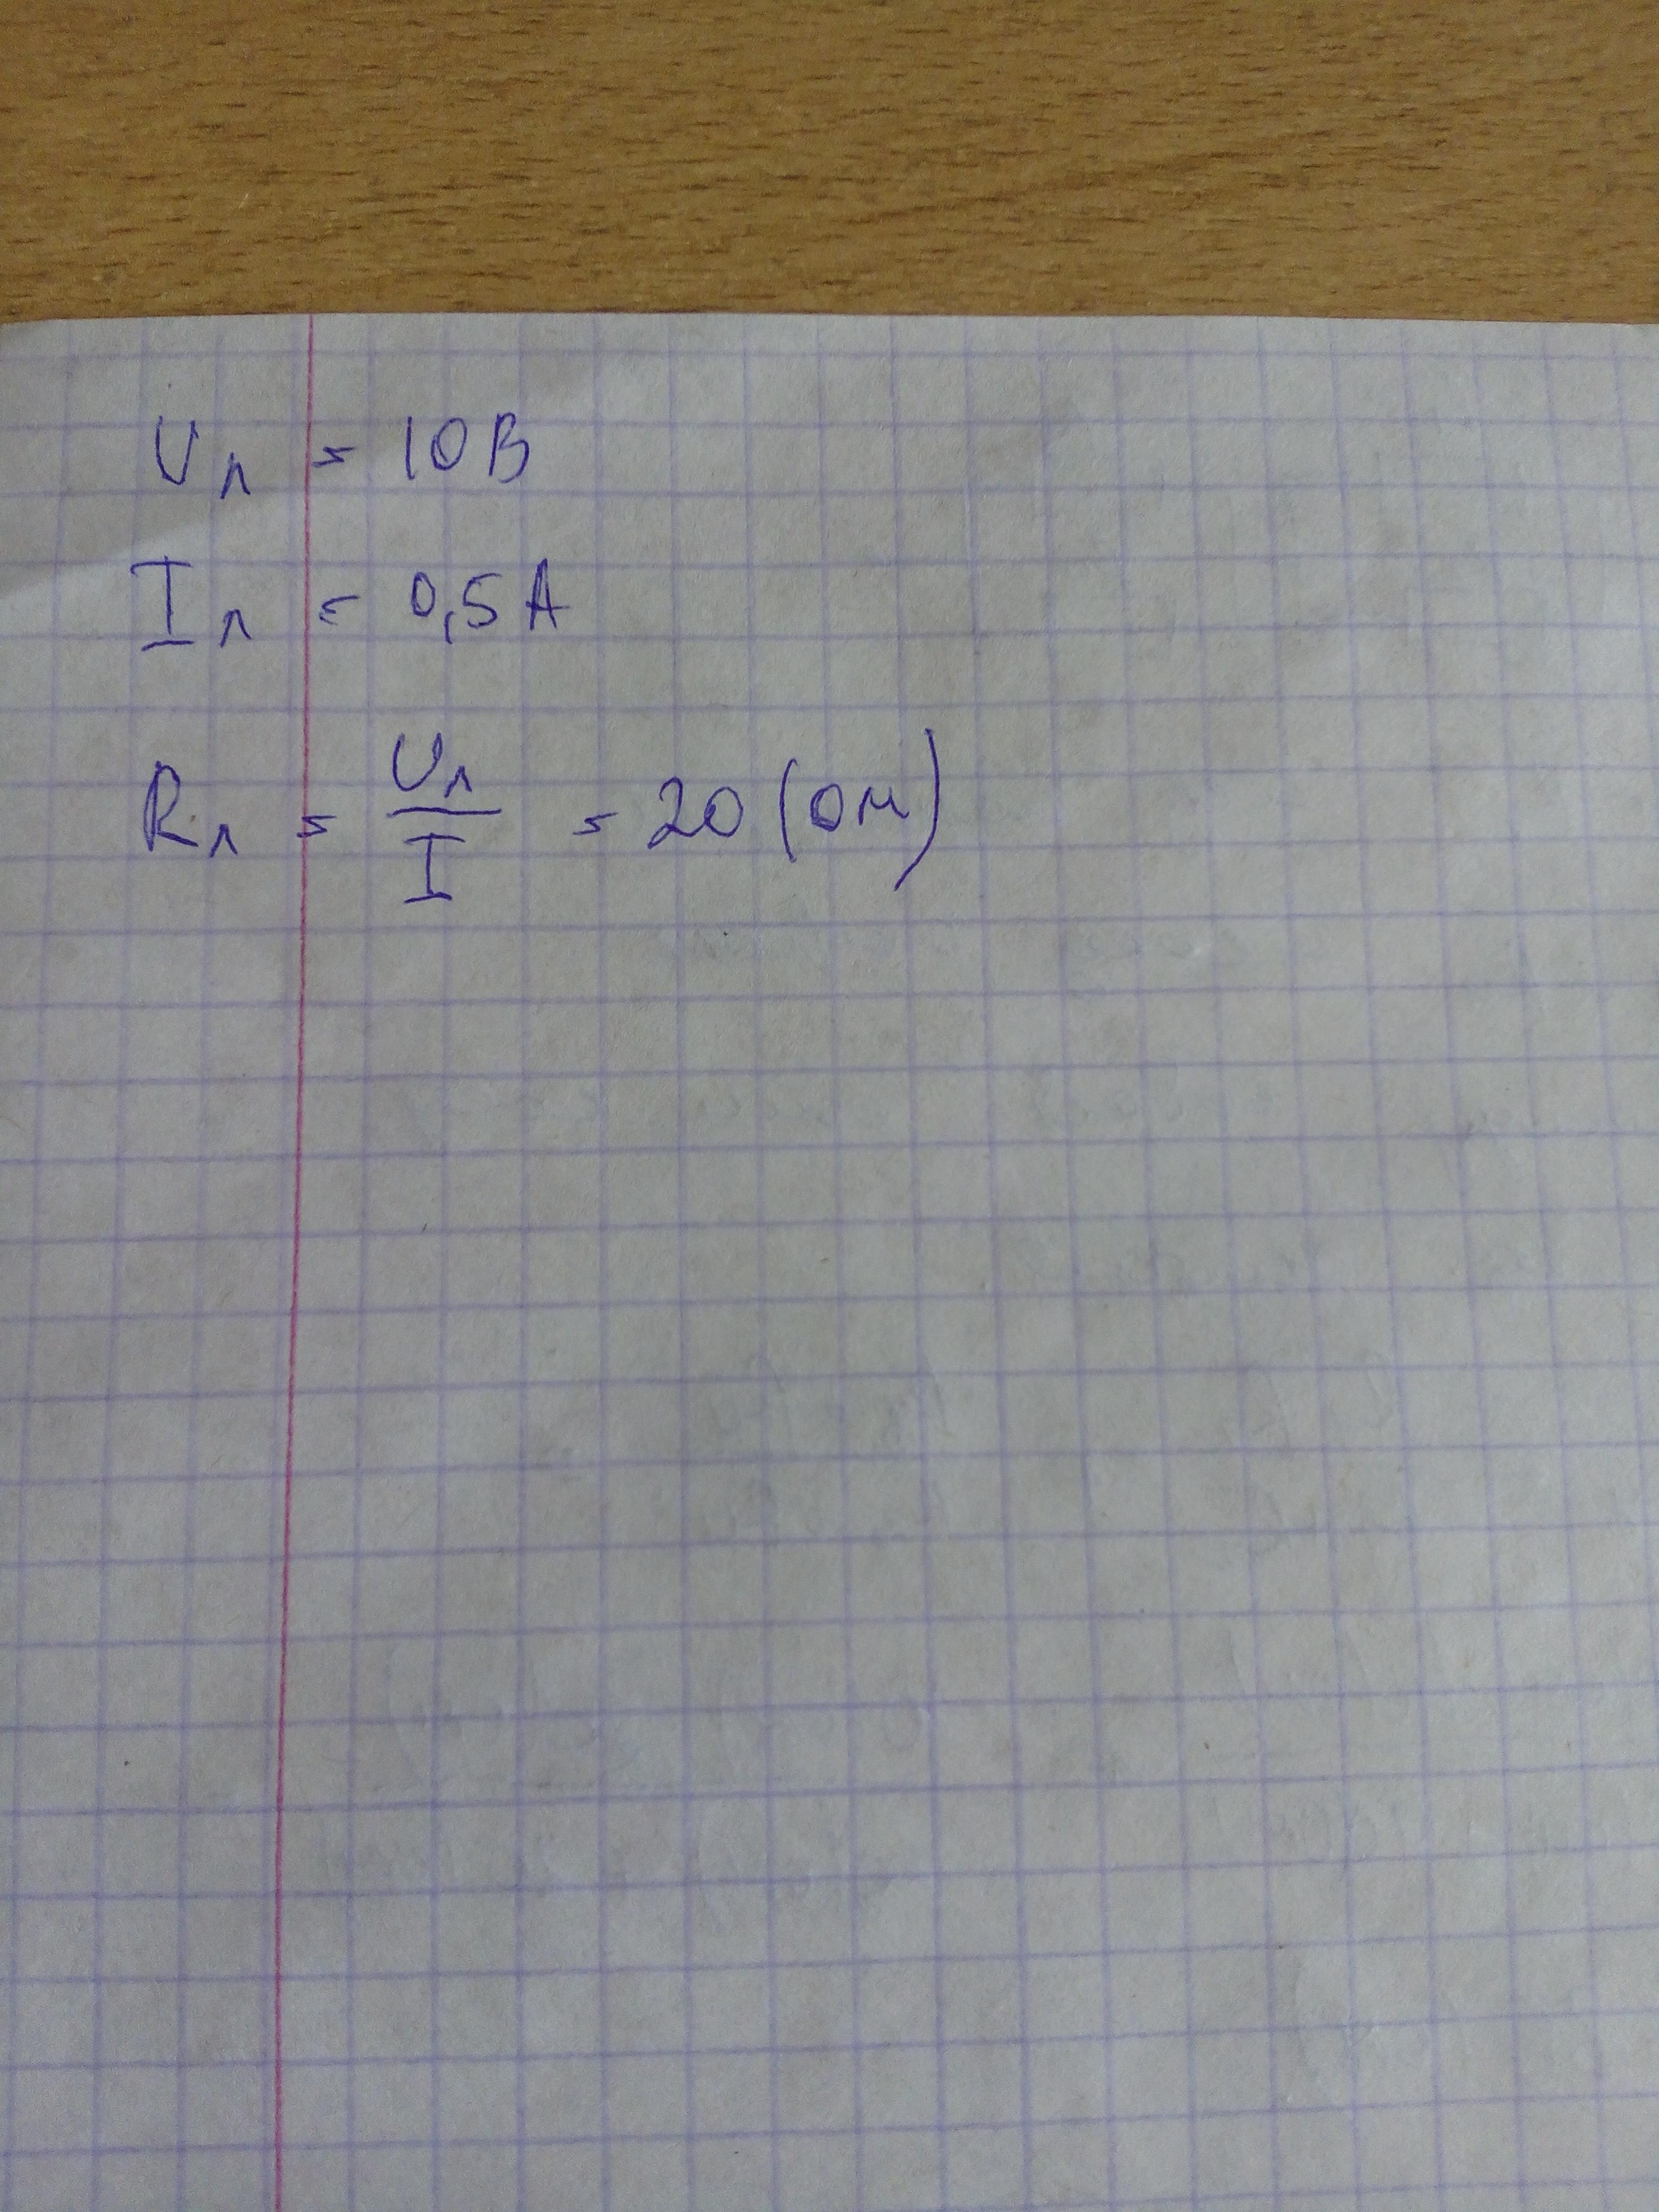 Uл = 10 В
Iл = 0,5 А
Rл = Uл / I = 20 (Ом)